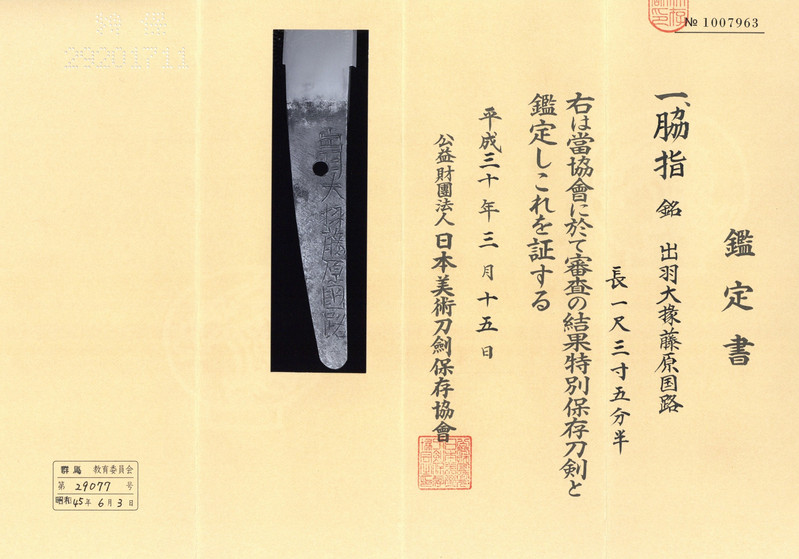 № 1007963
鑑定書
一、脇指 銘 出羽大掾藤原国路
長一尺三寸五分半
右は當協會に於て審査の結果特別保存刀剣と
鑑定しこれを証する
平成三十年三月十五日
公益財團法人日本美術刀劍保存協會
出羽大掾藤原國路
群馬 教育委員会
第 29077 号
昭和45年6月3日
29201711